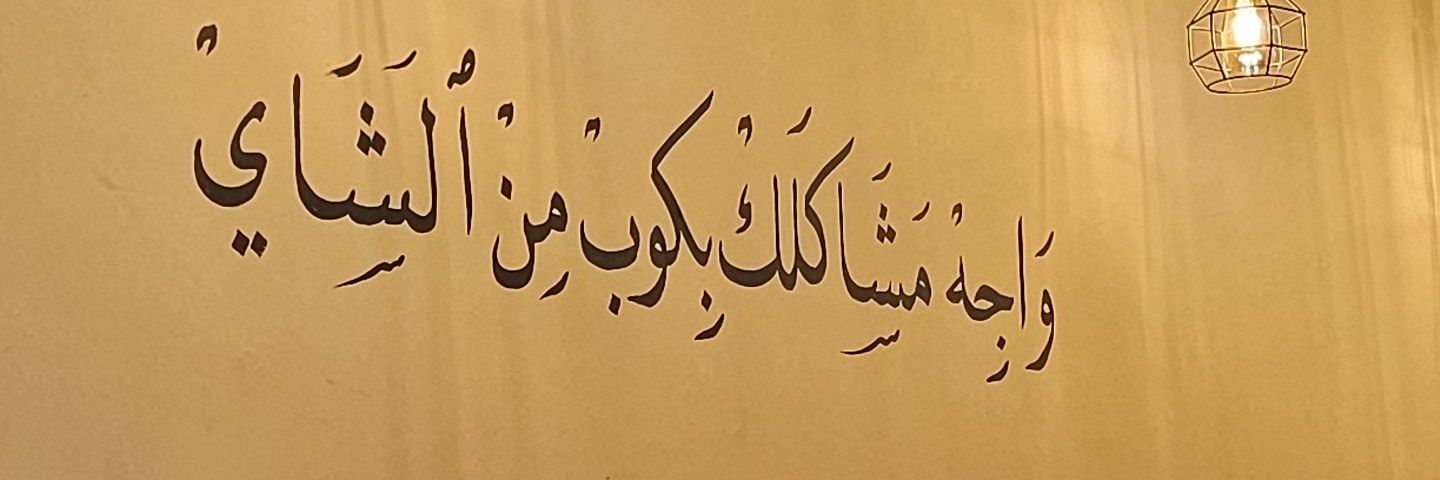 وَاجِهْ مَشَاكَلَكْ بِكوبْ مِنْ ٱلشَّايْ